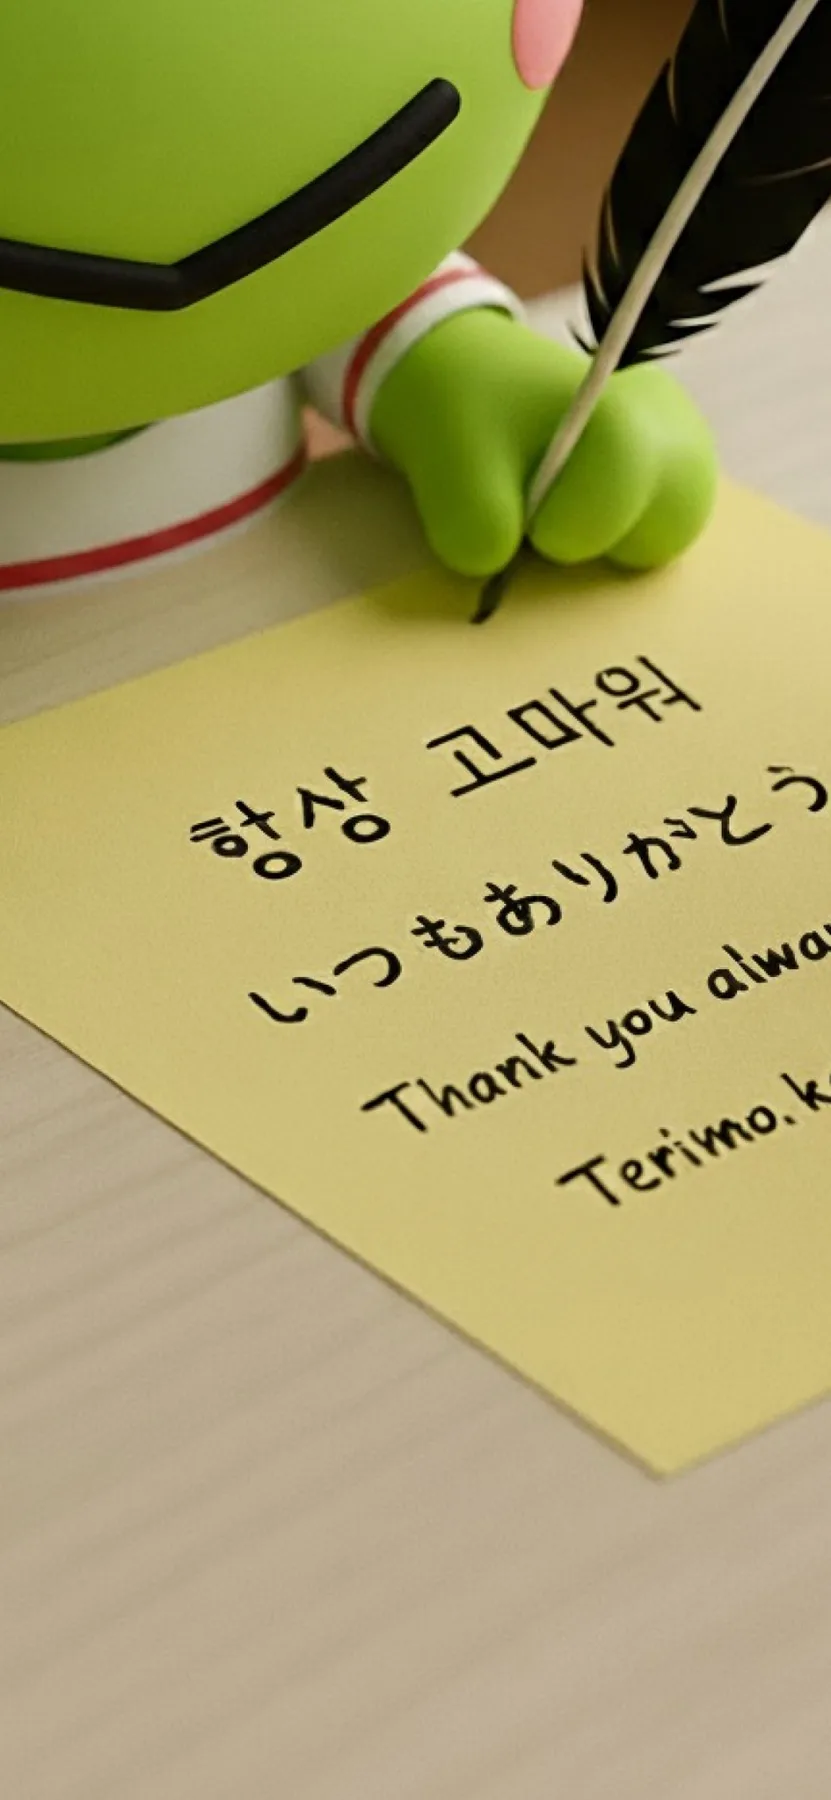 항상 고마워
いつもありがとう
Thank you alwa
Terimo.k